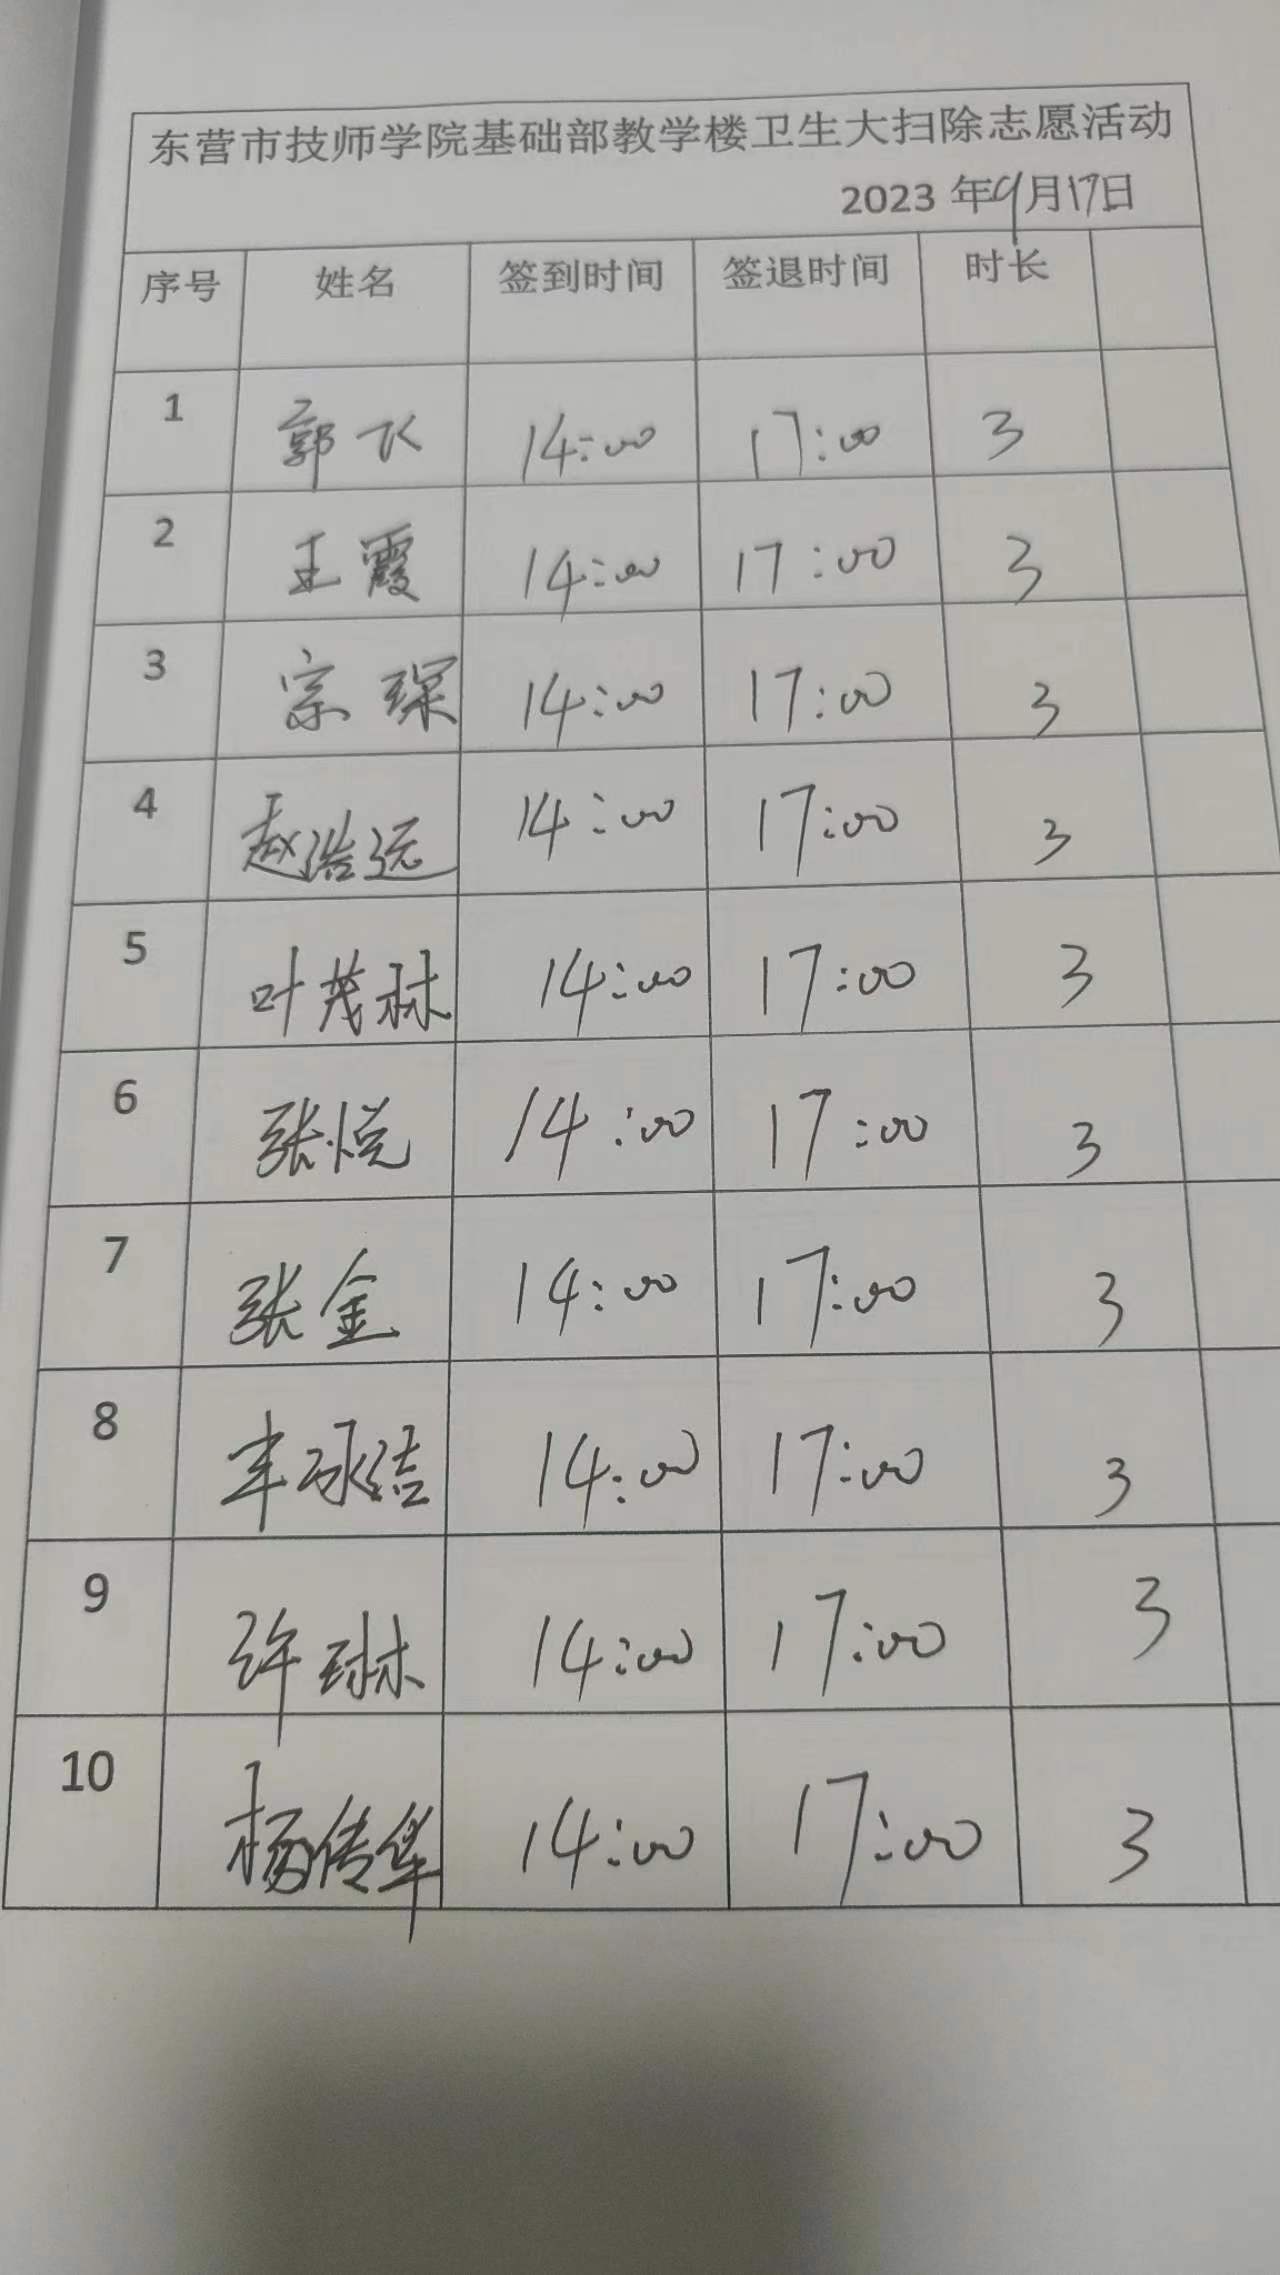 东营市技师学院基础部教学楼卫生大扫除志愿活动
2023 年9月17日
序号 姓名 签到时间 签退时间 时长
1 郭飞 14:00 17:00 3
2 王霞 14:00 17:00 3
3 宗琛 14:00 17:00 3
4 赵浩远 14:00 17:00 3
5 叶茂林 14:00 17:00 3
6 张悦 14:00 17:00 3
7 张金 14:00 17:00 3
8 丰冰洁 14:00 17:00 3
9 许琳 14:00 17:00 3
10 杨传华 14:00 17:00 3